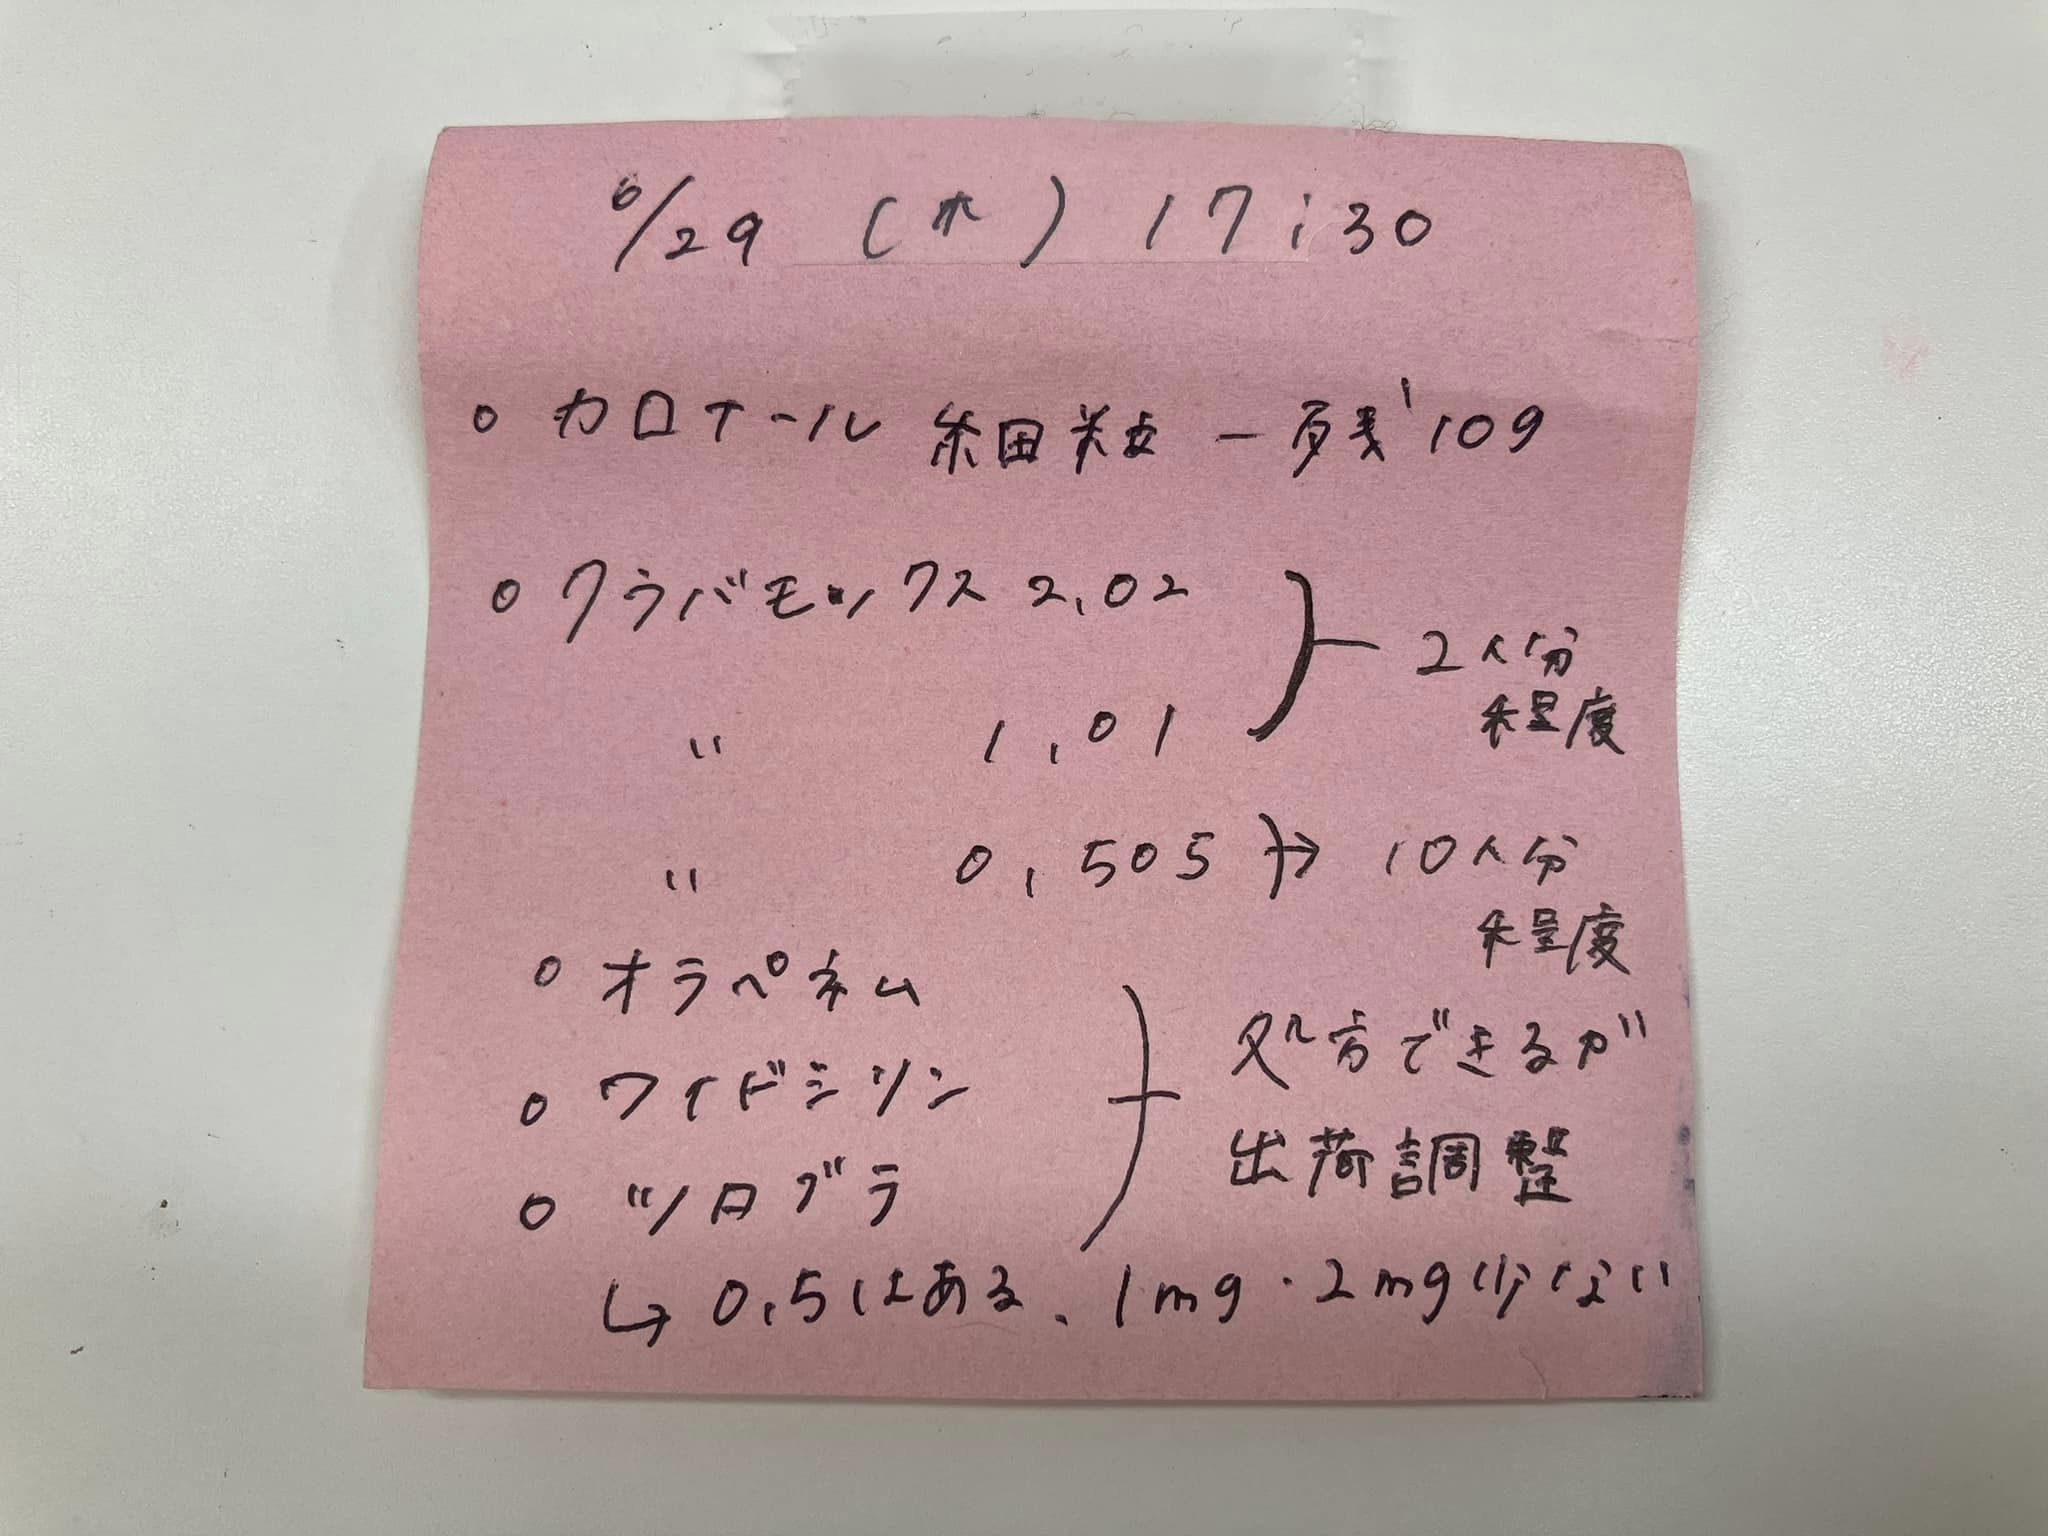 6/29 (木) 17:30
○ カロナール 細粒 ー 残 10g
○ クラバモックス 2.02
2人分
程度
〃 1.01
〃 0.505 → 10人分
程度
○ オラペネム
○ ワイドシリン
○ ツロブテ
処方できるが
出荷調整
↳ 0.5はある. 1mg・2mg少ない